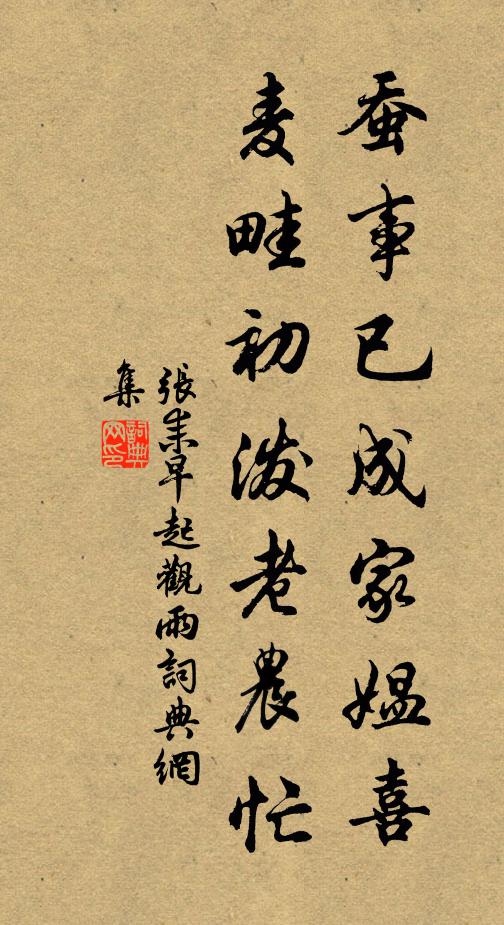 蚕事已成家媪喜
麦畦初泼老農忙
張耒早起觀雨詞典網
集
詞典
网印